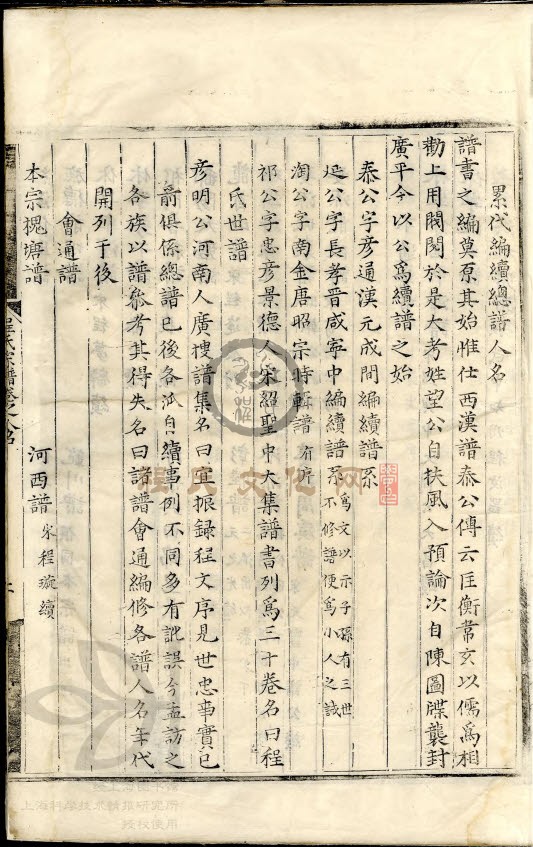 累代編續總譜人名
譜書之編莫原其始惟仕西漢譜泰公傳云匡衡常亥以儒爲相
勸上用閥閱於是大考姓望公自扶風入預論次自陳圖牒襲封
廣平今以公爲續譜之始
泰公字彥通漢元成間編續譜系
延公字長孝晉咸寧中編續譜系爲文以示子孫有三世不修譜便爲小人之誡
淘公字南金唐昭宗時輯譜有序
祁公字忠彥景德人宋紹聖中大集譜書列爲三十卷名曰程
氏世譜
彥明公河南人廣搜譜集名曰宜振録程文序見世忠事實已
前俱係總譜已後各派自續事例不同多有訛誤今孟訪之
各族以譜叅考其得失名曰諸譜會通編修各譜人名年代
開列于後
會通譜
本宗槐塘譜
河西譜宋程璇續
程氏宗譜
上海科學技術情報研究所
授权使用